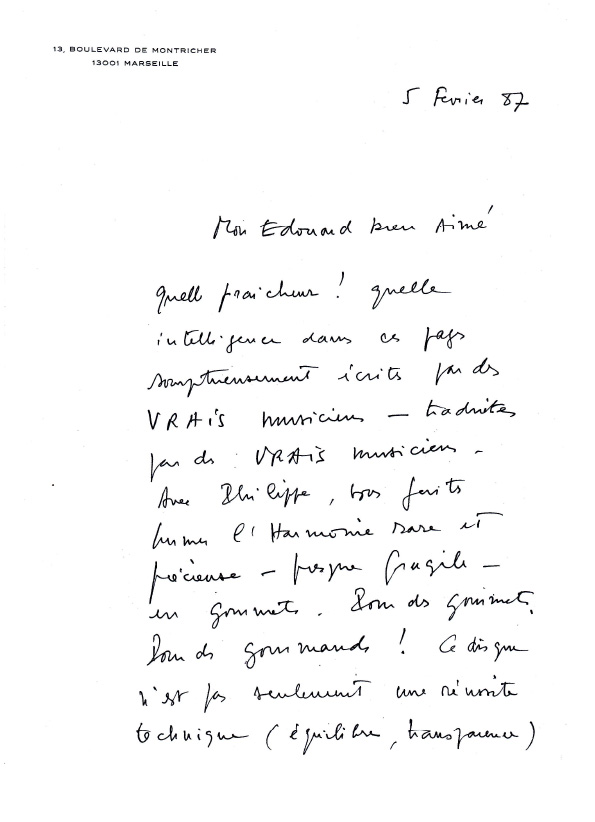 13, BOULEVARD DE MONTRICHER
13001 MARSEILLE
5 Fevrier 87
Mon Edouard bien Aimé
quelle fraicheur ! quelle
intelligence dans ces pages
somptueusement écrits par des
VRAIS musiciens — traduites
par des VRAIS musiciens -
Avec Philippe, vous faites
humer l'Harmonie rare et
précieuse — presque fragile —
en gourmets. Pour des gourmets,
Pour des gourmands ! Ce disque
n'est pas seulement une réussite
technique (équilibre, transparence)